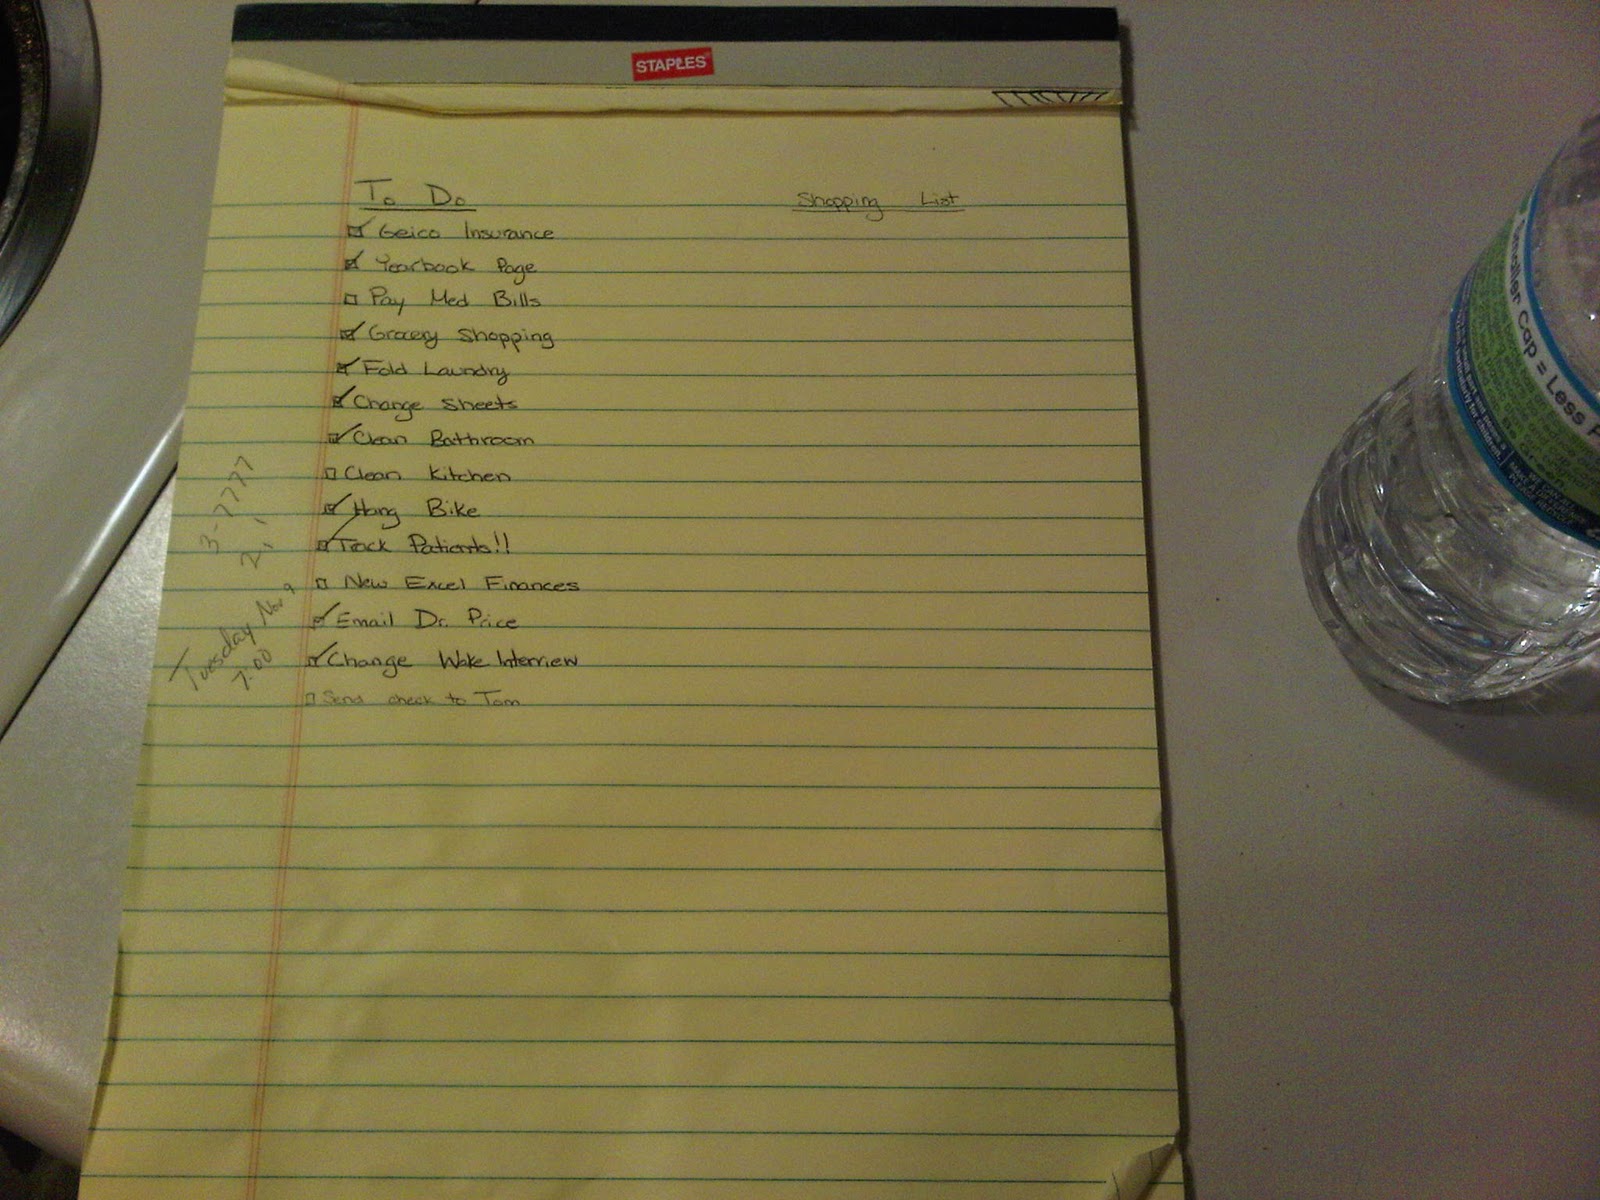 STAPLES
To Do
☑ Geico Insurance
☑ Yearbook Page
☐ Pay Med Bills
☑ Grocery Shopping
☑ Fold Laundry
☑ Change Sheets
☑ Clean Bathroom
☐ Clean Kitchen
☑ Hang Bike
☑ Track Patients!!
☐ New Excel Finances
☑ Email Dr. Price
☑ Change Wake Interview
☐ Send check to Tom
Shopping List
3-7777
2,1
Tuesday Nov 9
7:00
Smaller Cap = Less